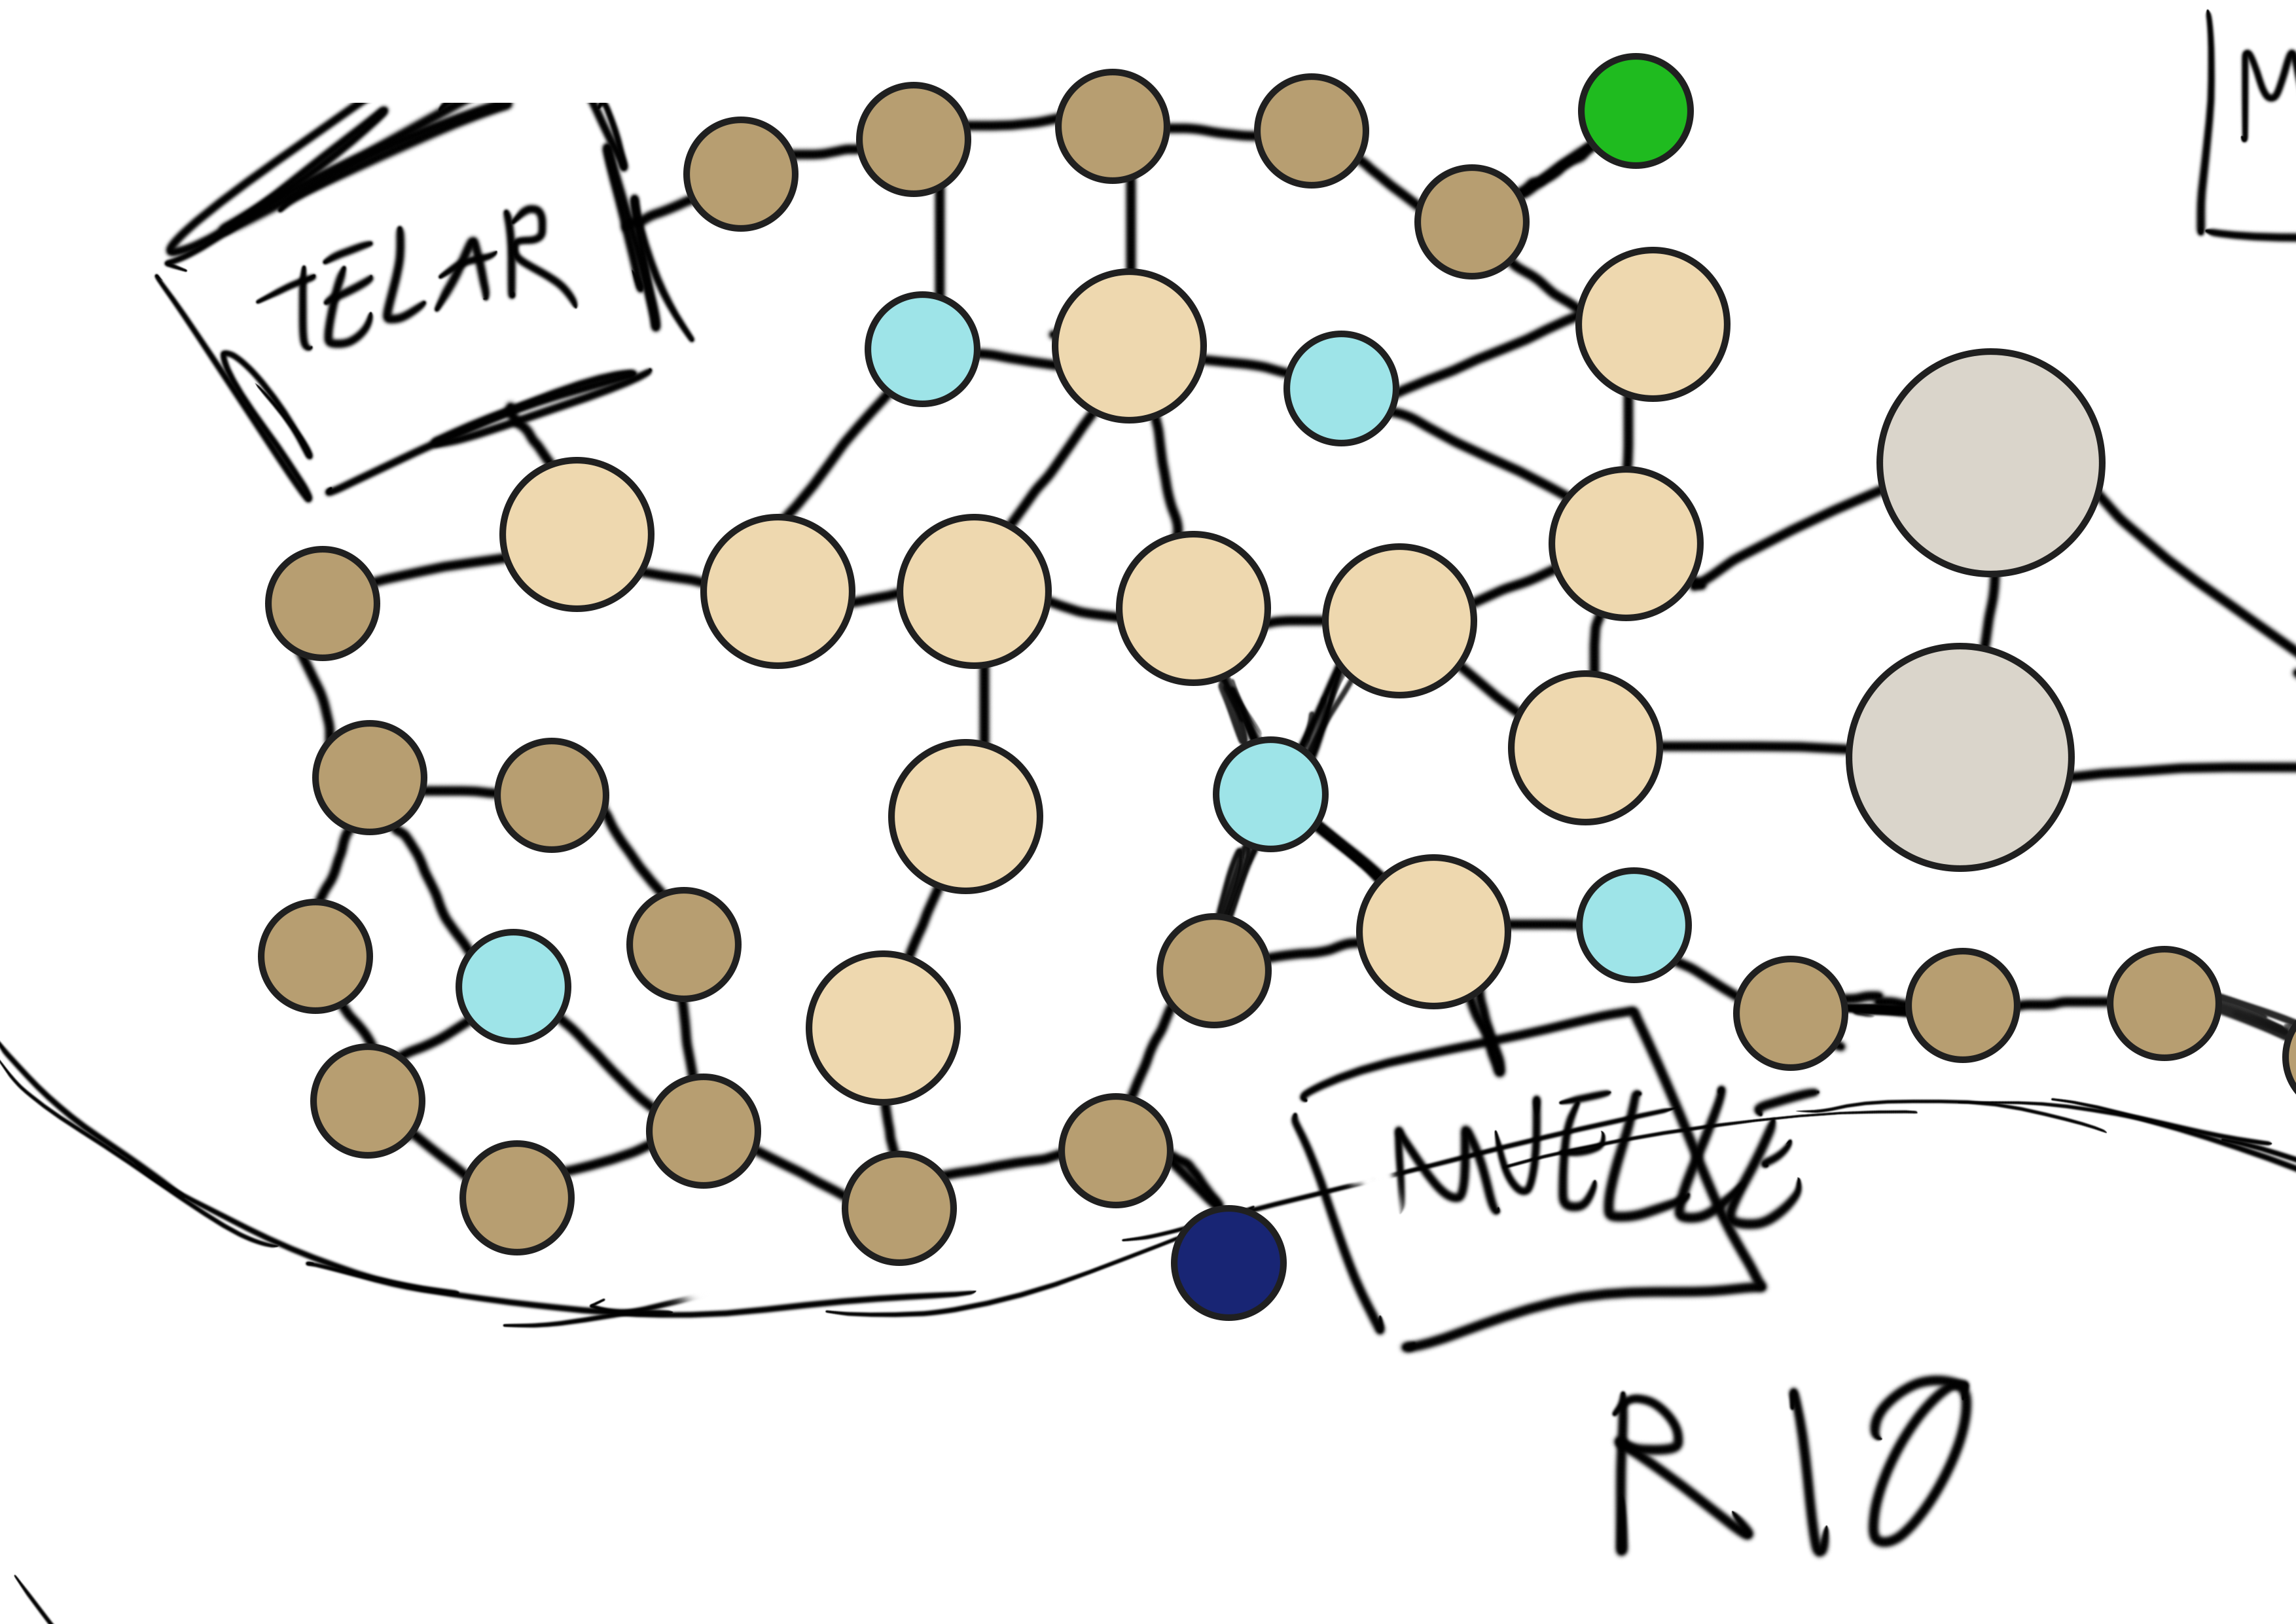 TELAR
M
MUELLE
RIO